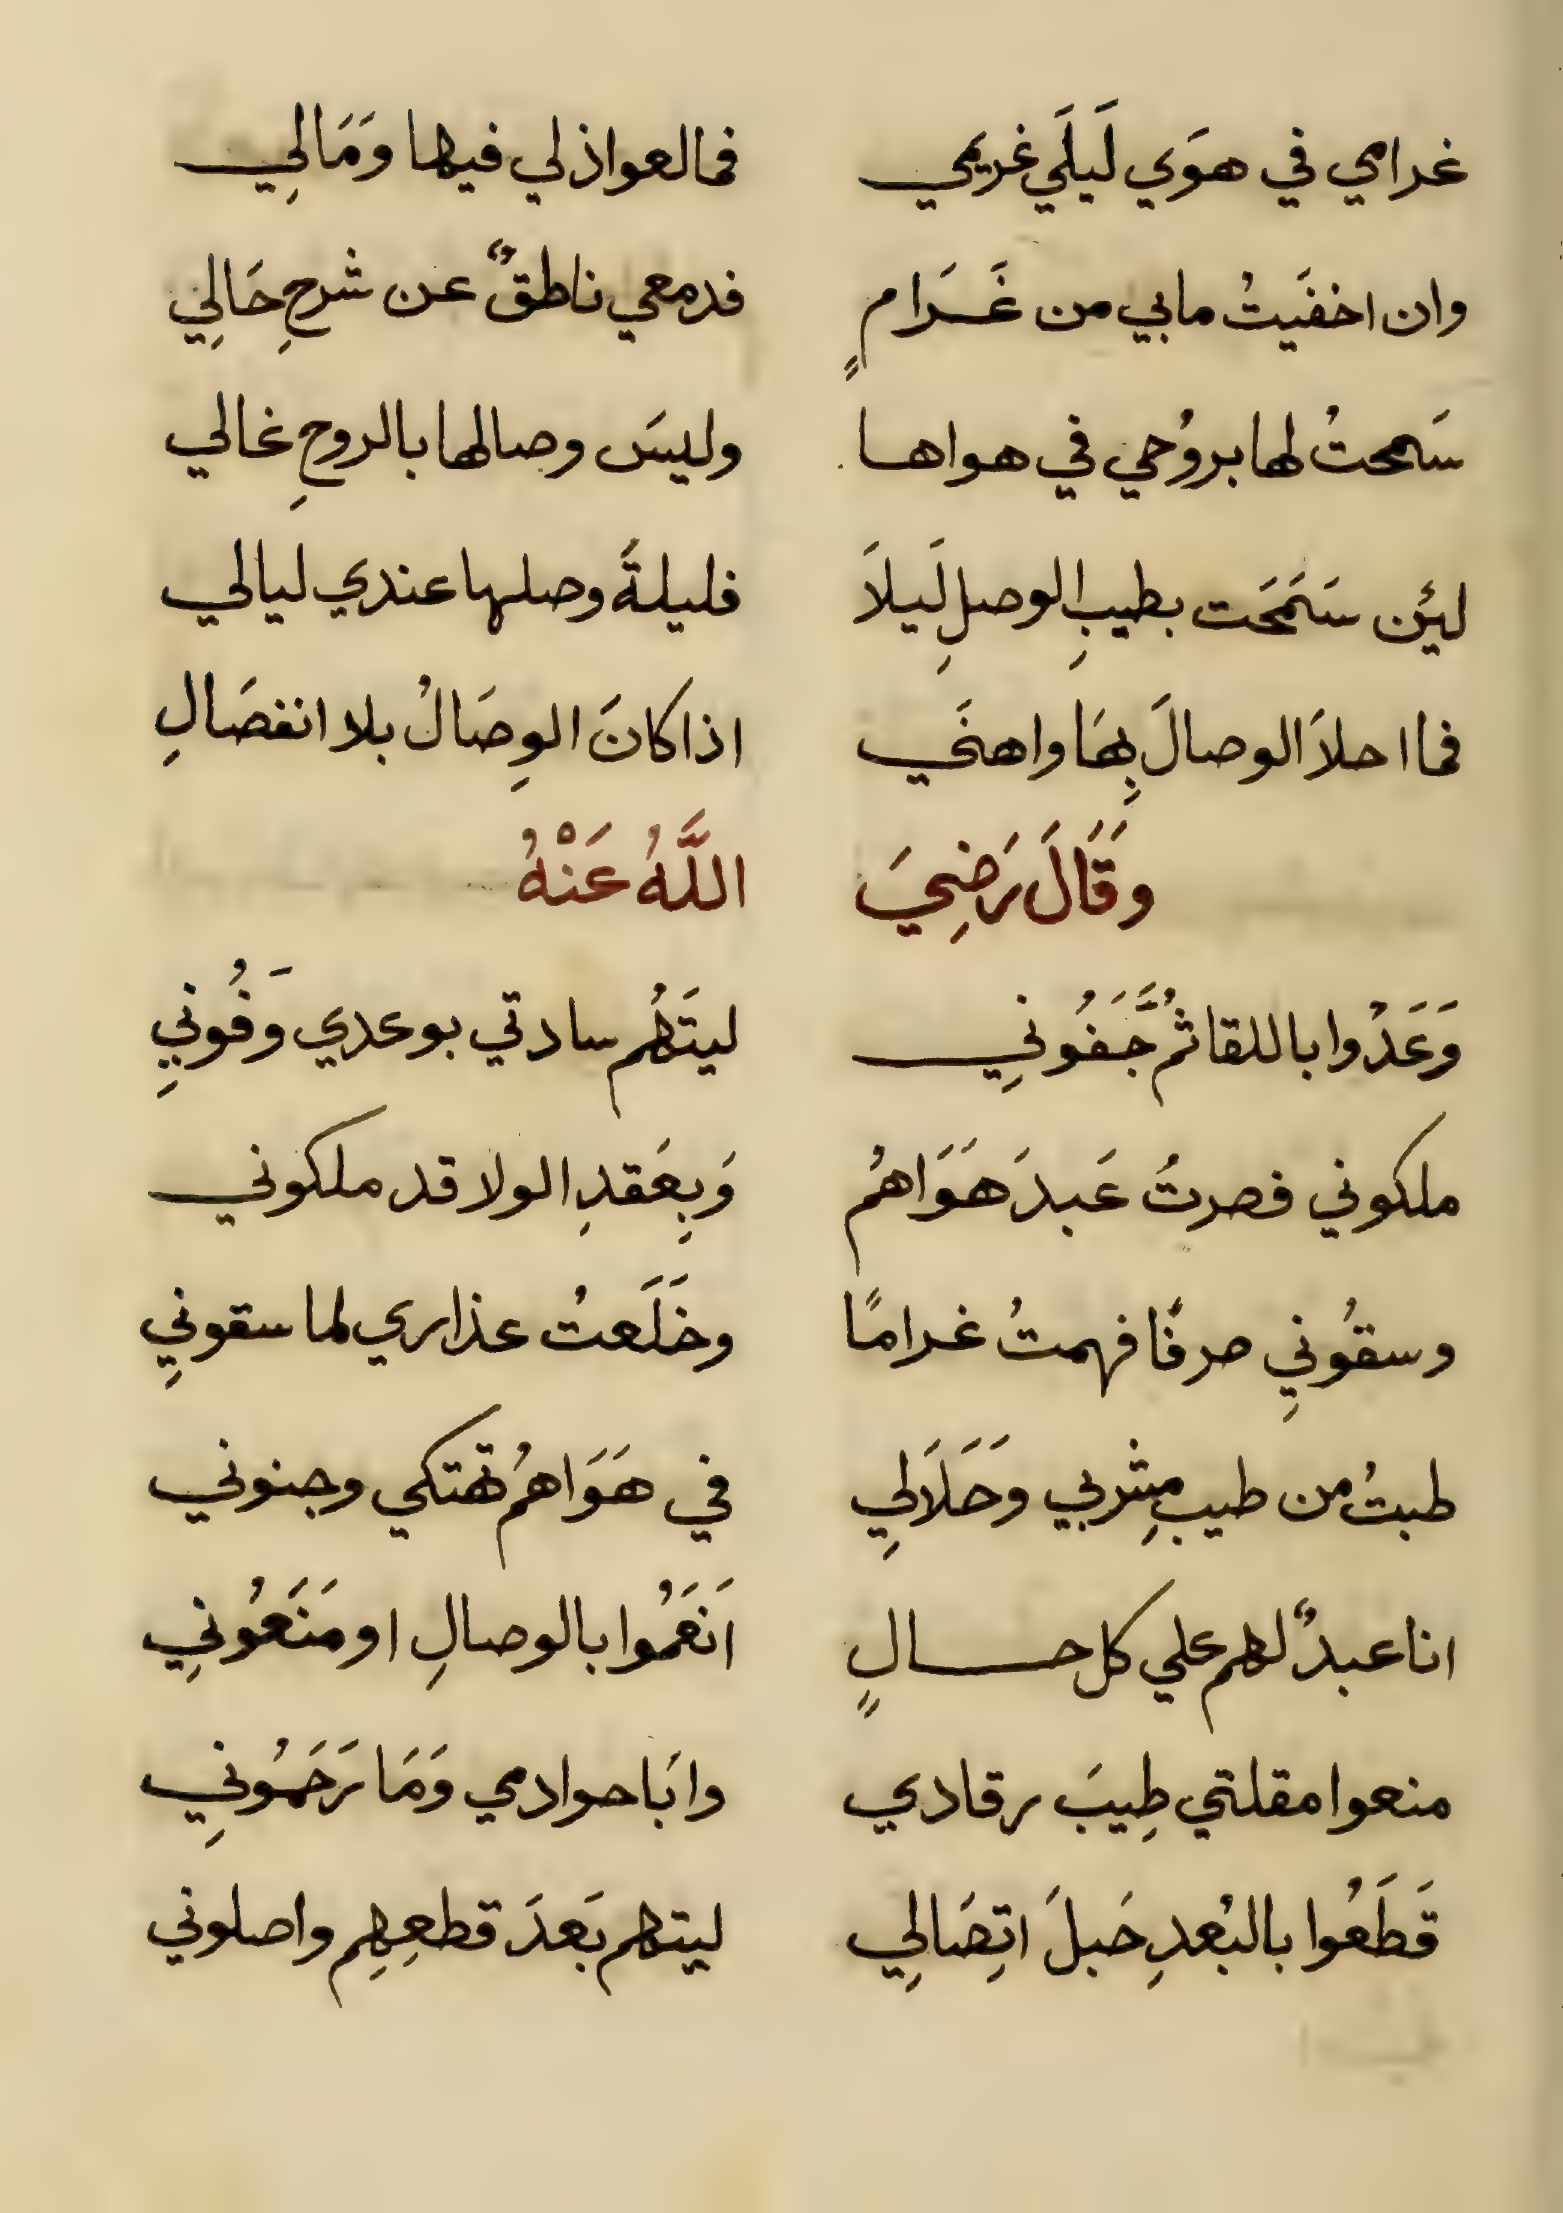 غرامي في هوَي لَيلَي غريمي فمالعواذلي فيها وَمَالِي
وان اخفَيتُ مابي من غَرَامٍ فدمعي ناطقٌ عن شرحِ حَالِي
سَمحتُ لها بروُحي في هواها وليسَ وصالها بالروحِ غالي
لئن سَمَحَت بطيبِ الوصلِ لَيلاَ فليلةُ وصلها عندي ليالي
فما احلاَ الوصالَ بِهَا واهنَي اذا كانَ الوِصَالُ بلا انفصَالِ
وَقَالَ رَضِيَ اللَّهُ عَنْهُ
وَعَدُوا باللقا ثمَُّ جَفُونِي ليتَهُم سادتي بوعدي وَفُونِي
ملكوني فصرتُ عَبدَ هَوَاهُم وَبِعَقدِ الولا قد ملكوني
وسقوُنِي صرفًا فهمتُ غرامًا وخَلَعتُ عذاري لما سقونِي
طبتُ من طيب مشربي وَحَلاَلِي في هَوَاهُم تهتكي وجنوني
انا عبدٌ لهم علي كل حالٍ اَنعَمُوا بالوصالِ او مَنَعُونِي
منعوا مقلتي طِيبَ رقادي واَباحوا دمي وَمَا رَحَمُونِي
قَطَعُوا بالبُعدِ حَبلَ اتِصَالِي ليتهم بَعدَ قطعِهِم واصلوني